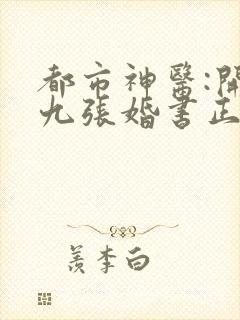 都市神醫:開
九張婚書正
羨李白